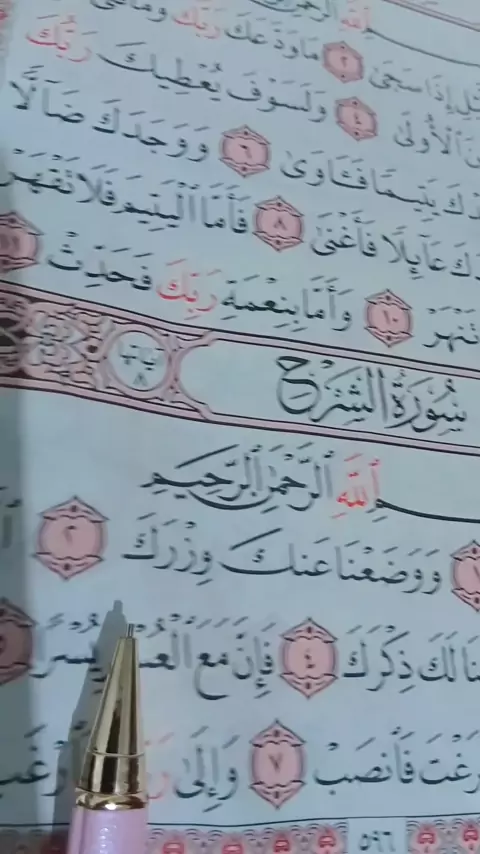 ٱللَّهِ ٱلرَّحْمَٰنِ
إِذَا سَجَىٰ ٢ مَا وَدَّعَكَ رَبُّكَ وَمَا
ٱلْأُولَىٰ ٤ وَلَسَوْفَ يُعْطِيكَ رَبُّكَ
يَتِيمًا فَـَٔاوَىٰ ٦ وَوَجَدَكَ ضَآلًّا
عَآئِلًا فَأَغْنَىٰ ٨ فَأَمَّا ٱلْيَتِيمَ فَلَا تَقْهَرْ
تَنْهَرْ ١٠ وَأَمَّا بِنِعْمَةِ رَبِّكَ فَحَدِّثْ ١١
سُورَةُ الشَّرْحِ آياتها ٨
ٱللَّهِ ٱلرَّحْمَٰنِ ٱلرَّحِيمِ
١ وَوَضَعْنَا عَنكَ وِزْرَكَ ٢
لَكَ ذِكْرَكَ ٤ فَإِنَّ مَعَ ٱلْعُسْرِ يُسْرًا ٥
فَٱنصَبْ ٧ وَإِلَىٰ
٥٩٦